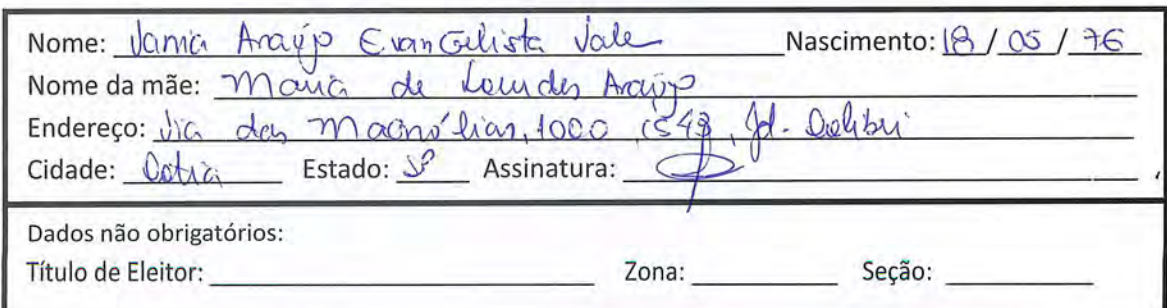 Nome: Vania Araújo Evangelista Vale Nascimento: 18 / 05 / 76
Nome da mãe: Maria de Lourdes Araújo
Endereço: Via das Magnólias, 1000 , Jd. Colibri
Cidade: Cotia Estado: SP Assinatura:
Dados não obrigatórios:
Título de Eleitor: Zona: Seção: